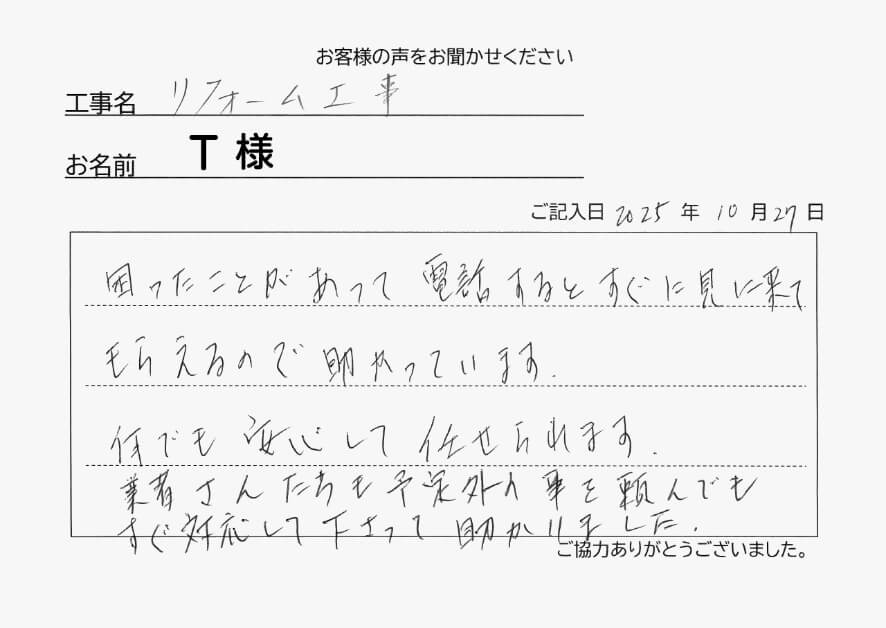 お客様の声をお聞かせください
工事名 リフォーム工事
お名前 T 様
ご記入日 2025 年 10 月 27 日
困ったことがあって 電話するとすぐに見に来て
もらえるので 助かっています.
何でも 安心して 任せられます.
業者さんたちも予定外の事を頼んでも
すぐ対応して下さって 助かりました.
ご協力ありがとうございました。